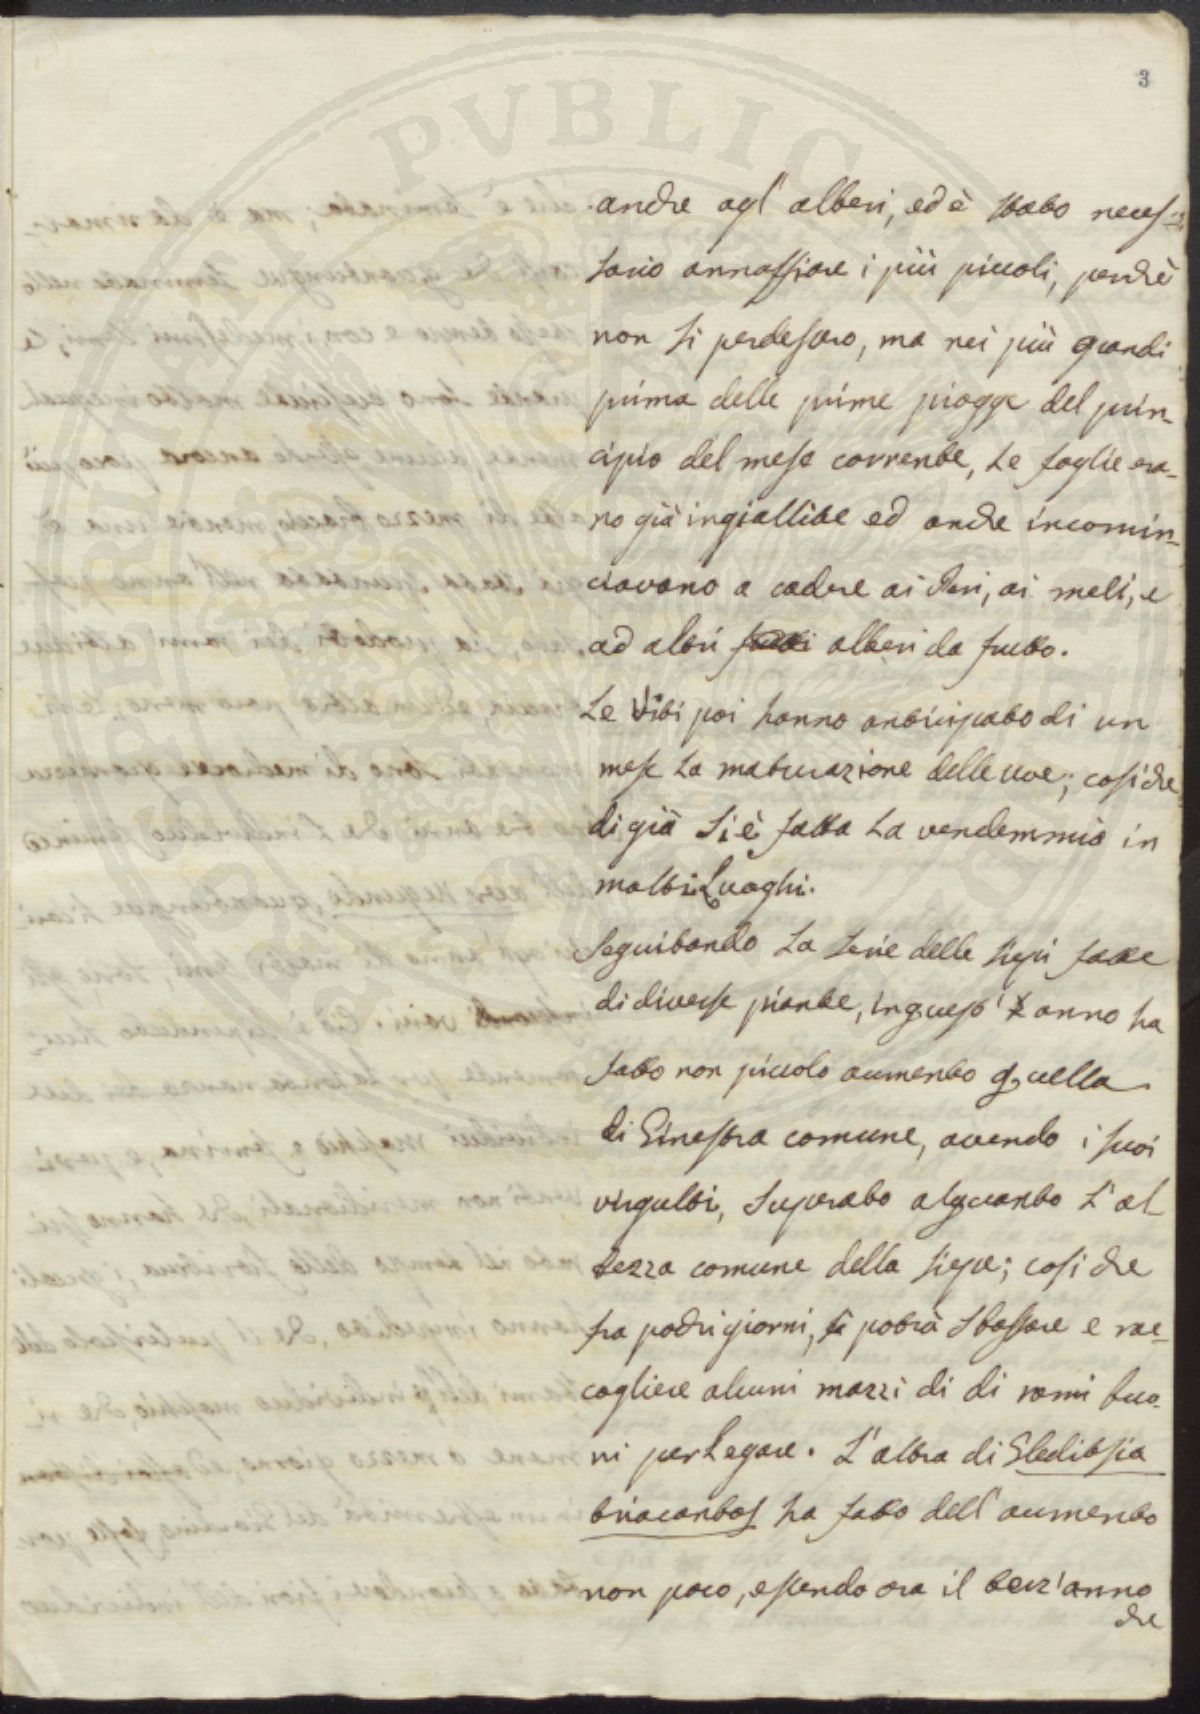 3
anche agl' alberi, ed è stato neces-
sario annaffiare i più piccoli, perchè
non si perdessero, ma nei più grandi
prima delle prime piogge del prin-
cipio del mese corrente, le foglie era-
no già ingiallite ed anche incomin-
ciavano a cadere ai Peri, ai meli, e
ad altri frutti alberi da frutto.
Le Viti poi hanno anticipato di un
mese la maturazione delle uve; cosichè
di già si è fatta la vendemmia in
molti Luoghi.
Seguitando la serie delle siepi fatte
di diverse piante, in quest' anno ha
fatto non piccolo aumento quella
di Ginestra comune, avendo i suoi
virgulti, superato alquanto l' al
tezza comune della siepe; cosichè
fra pochi giorni, si potrà sbassare e rac-
cogliere alcuni mazzi di di rami buo-
ni per Legare. L' altra di Gleditsia
triacantos ha fatto dell' aumento
non poco, essendo ora il terz' anno
che